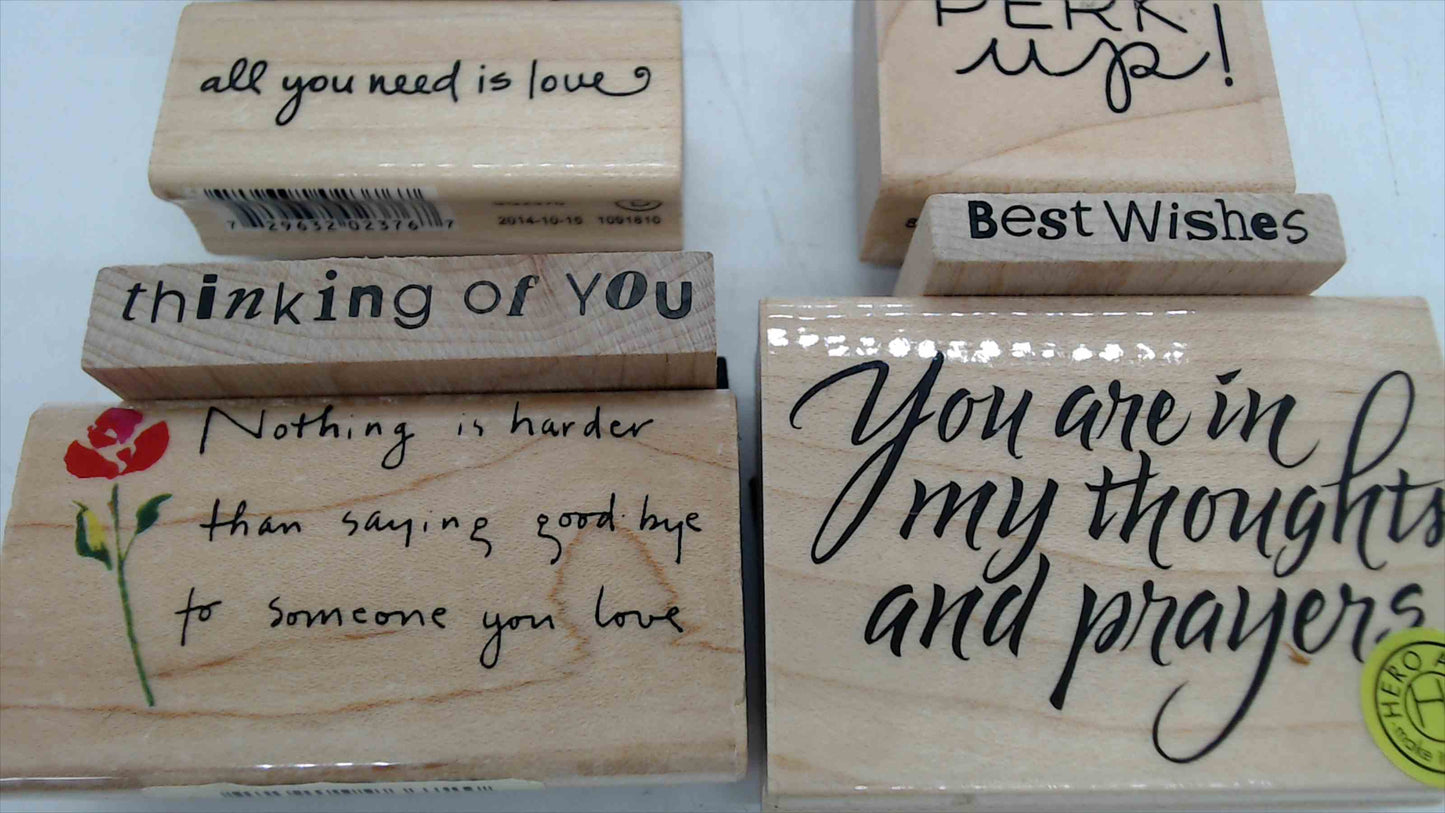 all you need is love
7 29632 02376 7
2014-10-15 1091810
PERK
up!
Best Wishes
thinking of you
Nothing is harder
than saying good-bye
to someone you love
You are in
my thoughts
and prayers
HERO
make